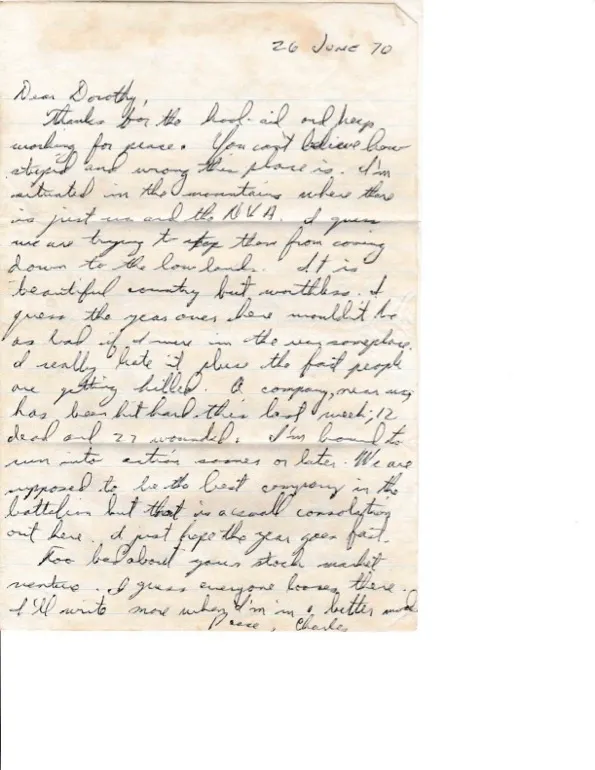 26 JUNE 70
Dear Dorothy,
Thanks for the kool-aid and keep
working for peace. You can't believe how
stupid and wrong this place is. I'm
situated in the mountains where there
is just us and the NVA. I guess
we are trying to stop them from coming
down to the low land. It is
beautiful country but worthless. I
guess the year over here wouldn't be
as bad if I were in the rear someplace.
I really hate it plus the fact people
are getting killed. A company, near us,
has been hit hard this last week; 12
dead and 27 wounded. I'm bound to
run into action sooner or later. We are
supposed to be the best company in the
battalion but that is a small consolation
out here. I just hope the year goes fast.
Too bad about your stock market
venture. I guess everyone looses there.
I'll write more when I'm in a better mood
Peace, Charles